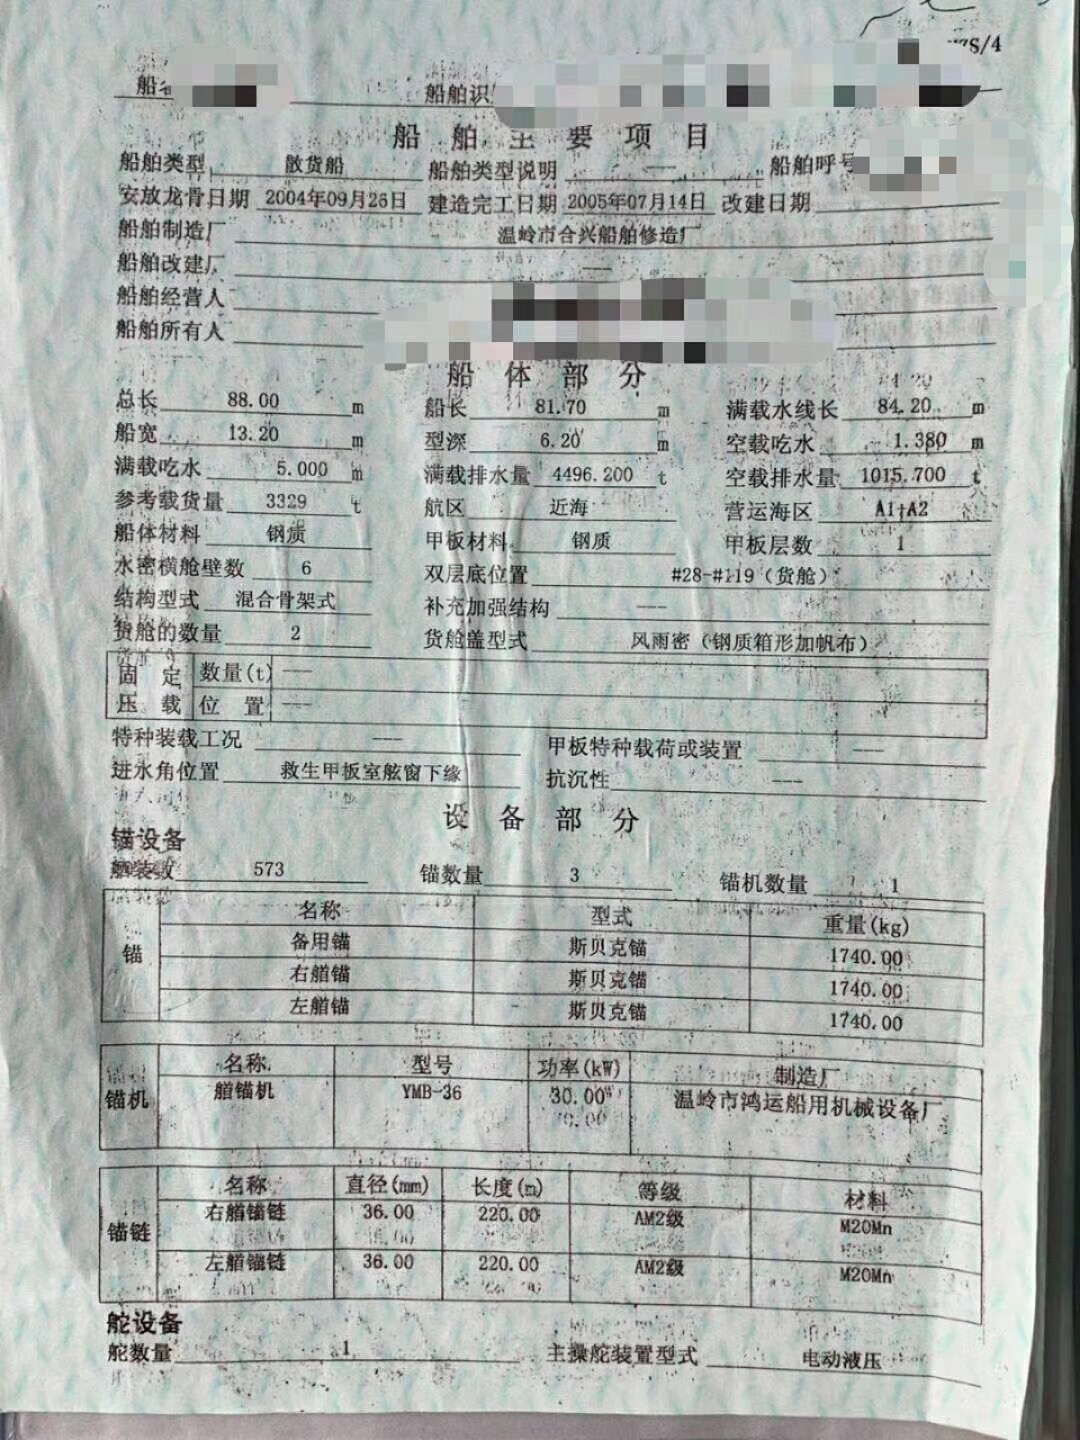 S/4
船 船舶识
船 舶 主 要 项 目
船舶类型 散货船 船舶类型说明 --- 船舶呼号
安放龙骨日期 2004年09月26日 建造完工日期 2005年07月14日 改建日期
船舶制造厂 温岭市合兴船舶修造厂
船舶改建厂 ---
船舶经营人
船舶所有人
船 体 部 分
总长 88.00 m 船长 81.70 m 满载水线长 84.20 m
船宽 13.20 m 型深 6.20 m 空载吃水 1.380 m
满载吃水 5.000 m 满载排水量 4496.200 t 空载排水量 1015.700 t
参考载货量 3329 t 航区 近海 营运海区 A1+A2
船体材料 钢质 甲板材料 钢质 甲板层数 1
水密横舱壁数 6 双层底位置 #28-#119(货舱)
结构型式 混合骨架式 补充加强结构 ---
货舱的数量 2 货舱盖型式 风雨密(钢质箱形加帆布)
固 定 数量(t) ---
压 载 位 置 ---
特种装载工况 --- 甲板特种载荷或装置 ---
进水角位置 救生甲板室舷窗下缘 抗沉性 ---
设 备 部 分
锚设备
舾装数 573 锚数量 3 锚机数量 1
名称 型式 重量(kg)
锚 备用锚 斯贝克锚 1740.00
右艏锚 斯贝克锚 1740.00
左艏锚 斯贝克锚 1740.00
名称 型号 功率(kW) 制造厂
锚机 艏锚机 YMB-36 30.00 温岭市鸿运船用机械设备厂
名称 直径(mm) 长度(m) 等级 材料
锚链 右艏锚链 36.00 220.00 AM2级 M20Mn
左艏锚链 36.00 220.00 AM2级 M20Mn
舵设备
舵数量 1 主操舵装置型式 电动液压